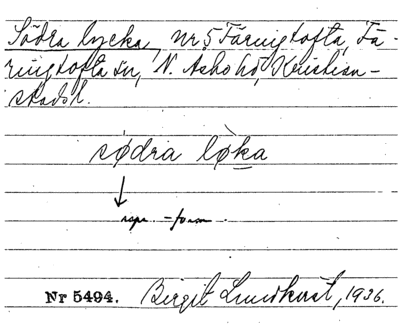 Södra lycka, nr 5 Färingtofta, Fä-
ringtofta sn, N. Åsbo hd, Kristian-
stads l.
sødra lø̀ka
↓
-form.
Nr 5494. Birgit Lundkvist, 1936.